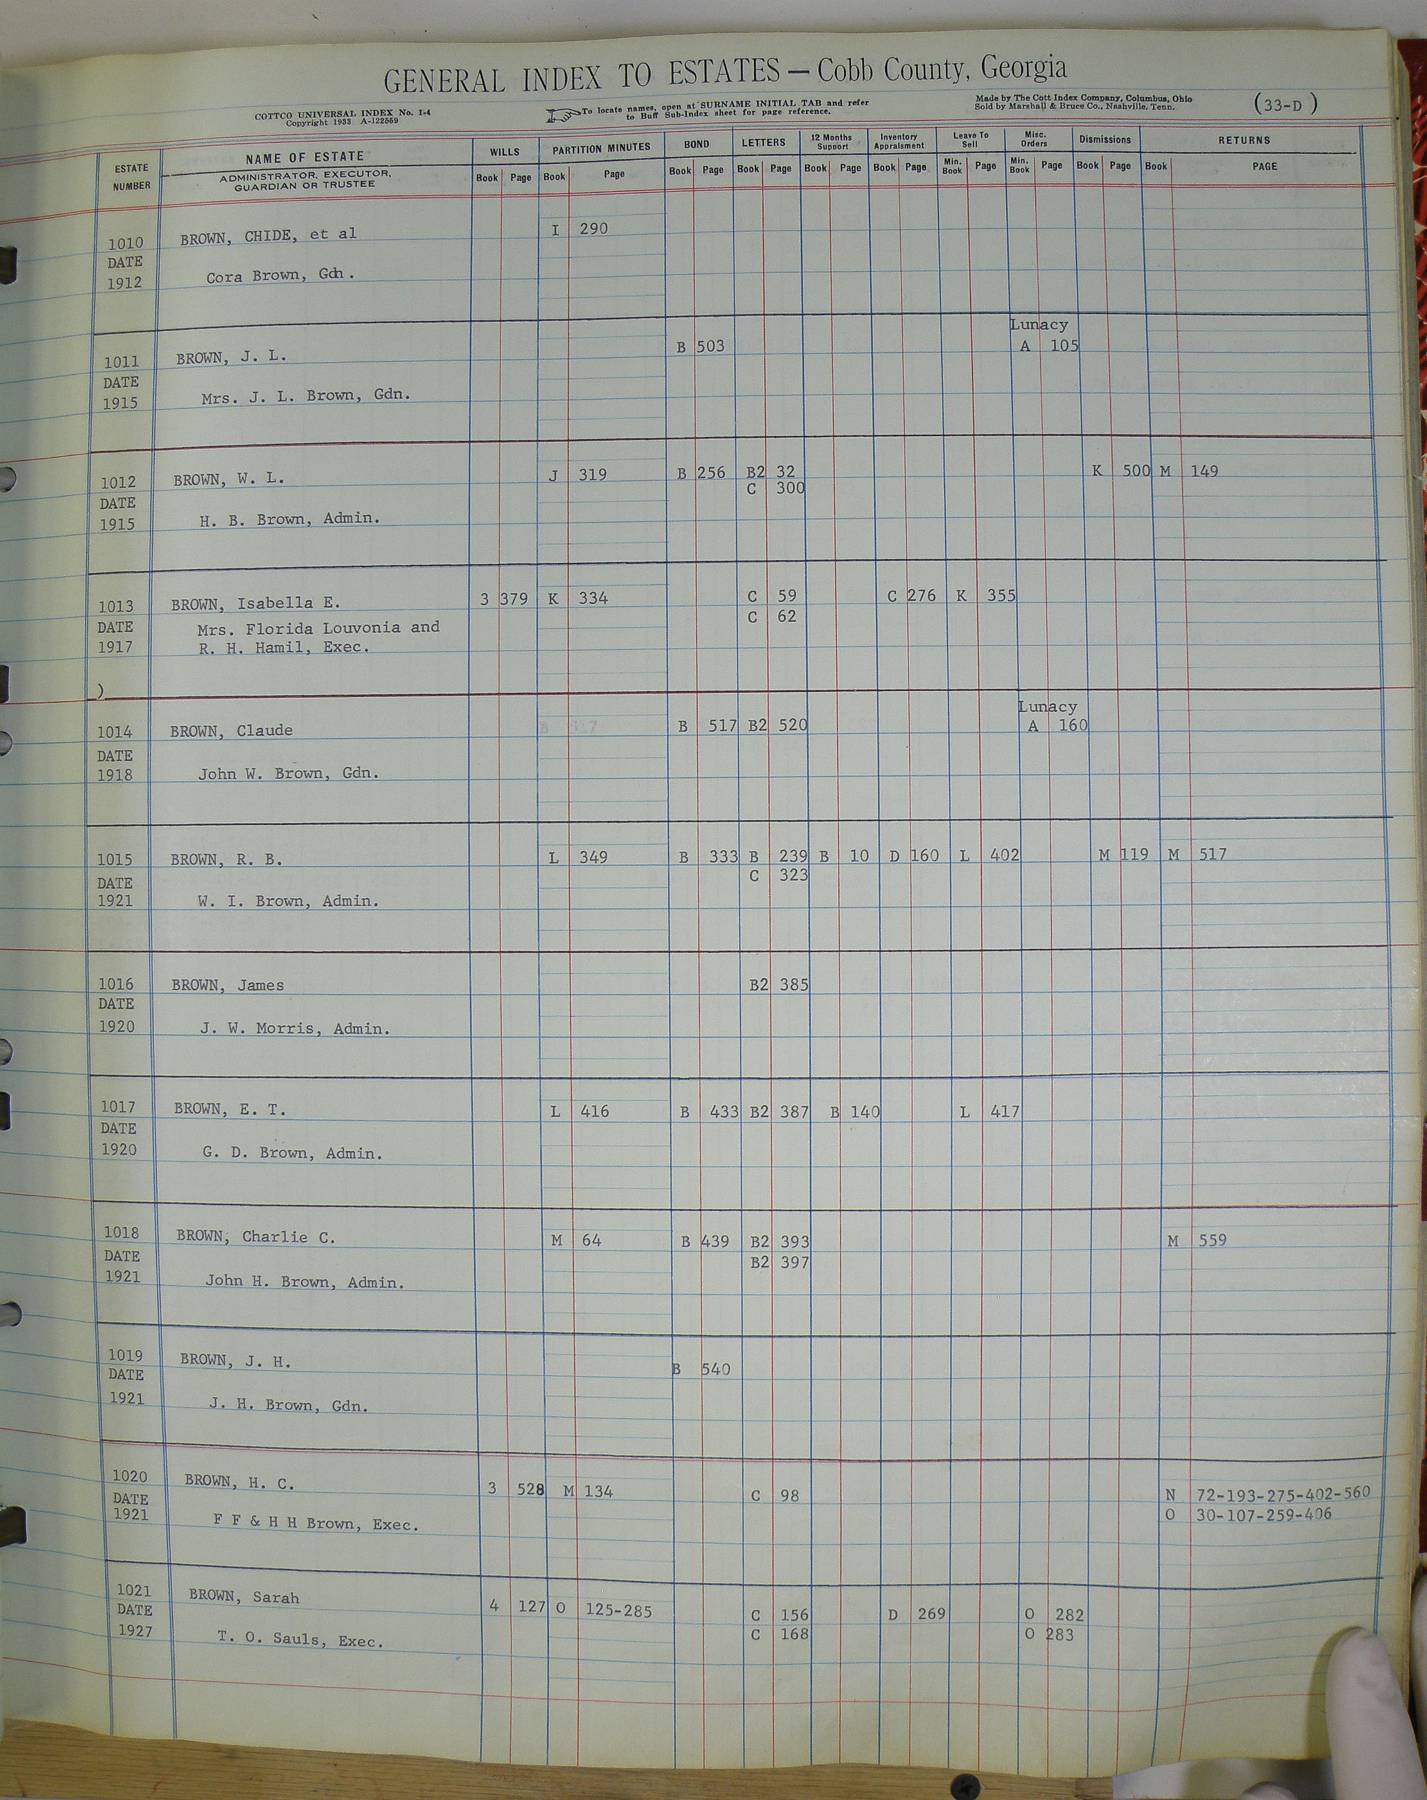 GENERAL INDEX TO ESTATES — Cobb County, Georgia
COTTCO UNIVERSAL INDEX No. I-4
Copyright 1933 A-122569
To locate names, open at SURNAME INITIAL TAB and refer
to Buff Sub-Index sheet for page reference.
Made by The Cott Index Company, Columbus, Ohio
Sold by Marshall & Bruce Co., Nashville, Tenn.
(33-D)
ESTATE NUMBER
NAME OF ESTATE
ADMINISTRATOR, EXECUTOR,
GUARDIAN OR TRUSTEE
WILLS PARTITION MINUTES BOND LETTERS 12 Months Support Inventory Appraisment Leave To Sell Misc. Orders Dismissions RETURNS
Book Page Book Page Book Page Book Page Book Page Book Page Min. Book Page Min. Book Page Book Page Book PAGE
1010 BROWN, CHIDE, et al I 290
DATE
1912 Cora Brown, Gdn.
Lunacy
1011 BROWN, J. L. B 503 A 105
DATE
1915 Mrs. J. L. Brown, Gdn.
1012 BROWN, W. L. J 319 B 256 B2 32 K 500 M 149
C 300
DATE
1915 H. B. Brown, Admin.
1013 BROWN, Isabella E. 3 379 K 334 C 59 C 276 K 355
C 62
DATE Mrs. Florida Louvonia and
1917 R. H. Hamil, Exec.
)
Lunacy
1014 BROWN, Claude B 517 B2 520 A 160
DATE
1918 John W. Brown, Gdn.
1015 BROWN, R. B. L 349 B 333 B 239 B 10 D 160 L 402 M 119 M 517
C 323
DATE
1921 W. I. Brown, Admin.
1016 BROWN, James B2 385
DATE
1920 J. W. Morris, Admin.
1017 BROWN, E. T. L 416 B 433 B2 387 B 140 L 417
DATE
1920 G. D. Brown, Admin.
1018 BROWN, Charlie C. M 64 B 439 B2 393 M 559
B2 397
DATE
1921 John H. Brown, Admin.
1019 BROWN, J. H. B 540
DATE
1921 J. H. Brown, Gdn.
1020 BROWN, H. C. 3 528 M 134 C 98 N 72-193-275-402-560
O 30-107-259-406
DATE
1921 F F & H H Brown, Exec.
1021 BROWN, Sarah 4 127 O 125-285 C 156 D 269 O 282
C 168 O 283
DATE
1927 T. O. Sauls, Exec.